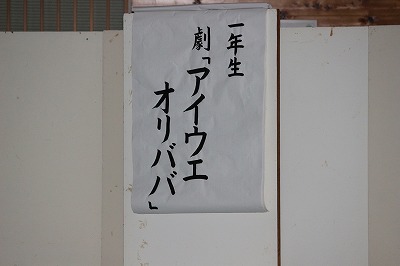 一年生
劇「アイウエ
オリババ」